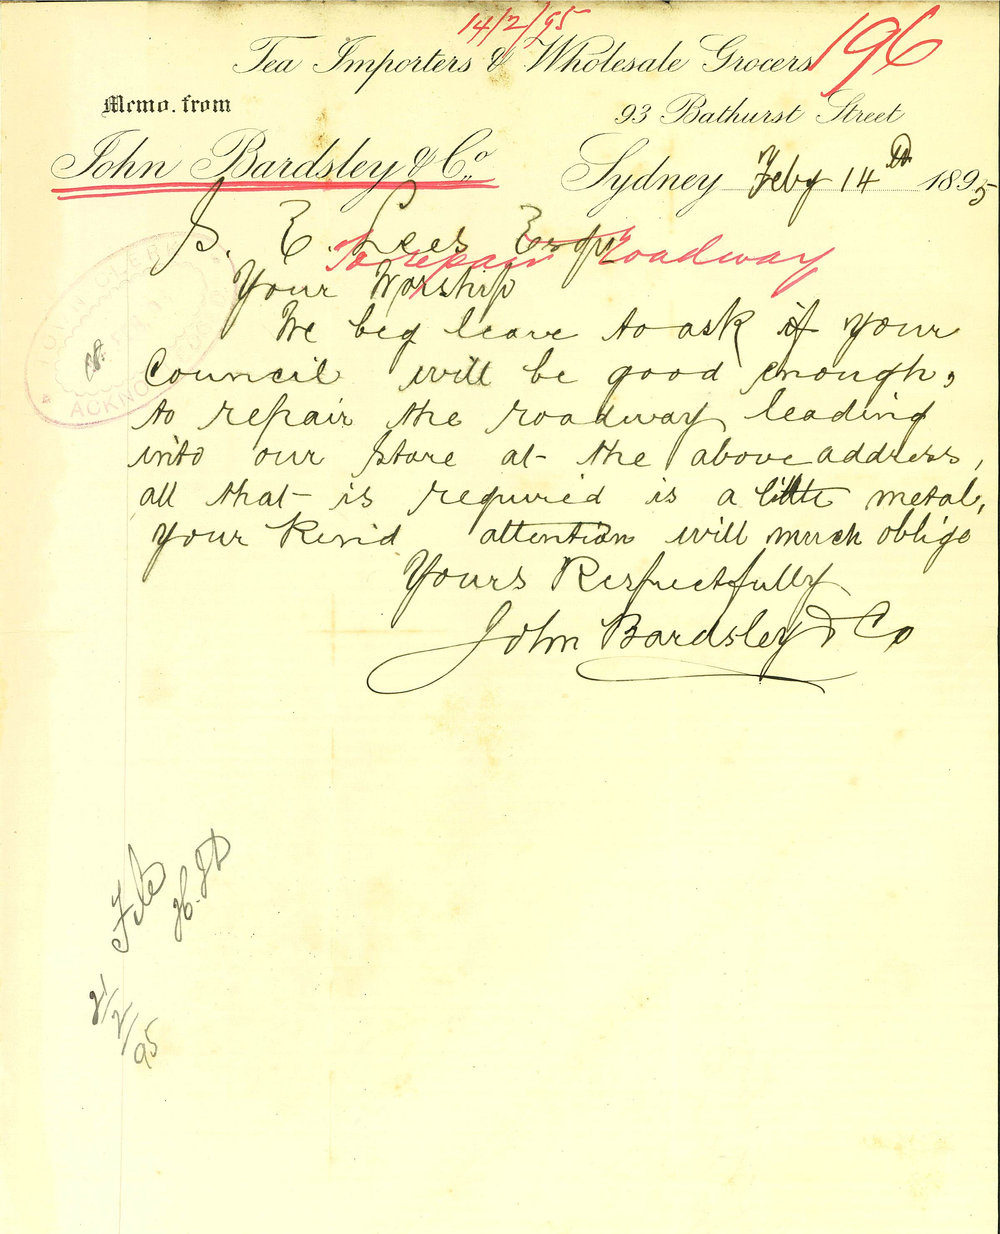 14/2/95
196
Tea Importers & Wholesale Grocers
Memo. from
93 Bathurst Street
John Bardsley & Co.,
Sydney Feby 14th 1895
S. E. Lees Esqr
To repair roadway
Your Worship
We beg leave to ask if your
Council will be good enough,
to repair the roadway leading
into our store at the above address,
all that is required is a little metal,
your kind attention will much oblige
Yours Respectfully
John Bardsley & Co
ACKNO
File
21/2/95